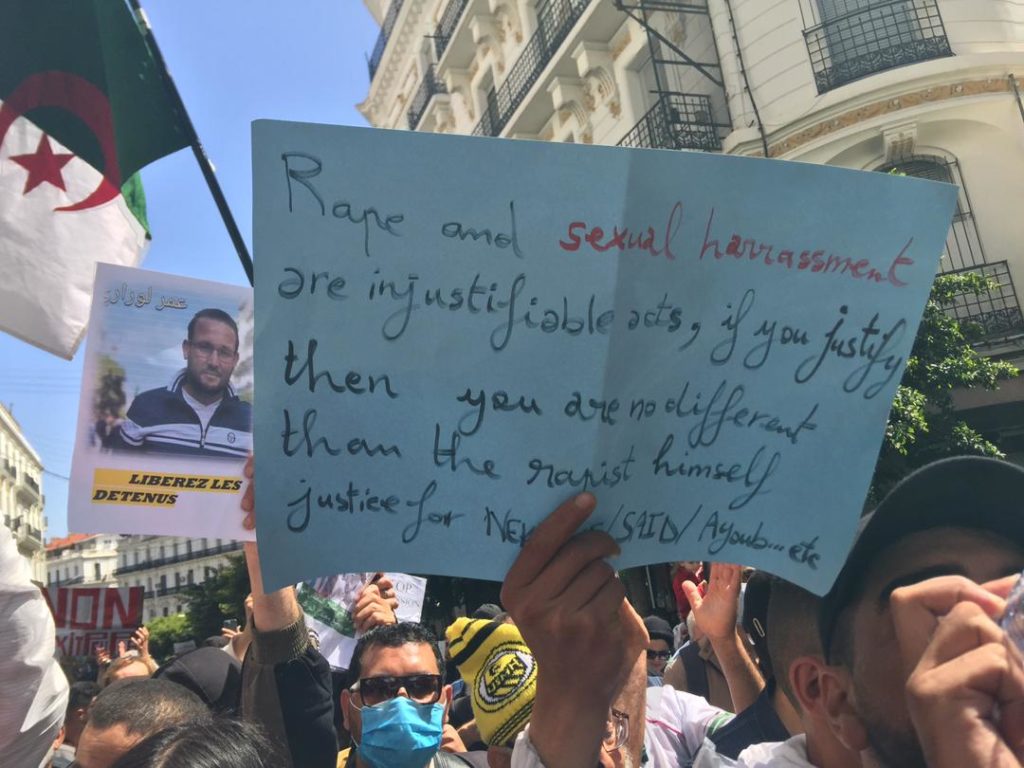 Rape and sexual harrassment
are injustifiable acts, if you justify
then you are no different
than the rapist himself
justice for SAID/ Ayoub...etc
LIBEREZ LES
DETENUS
NON